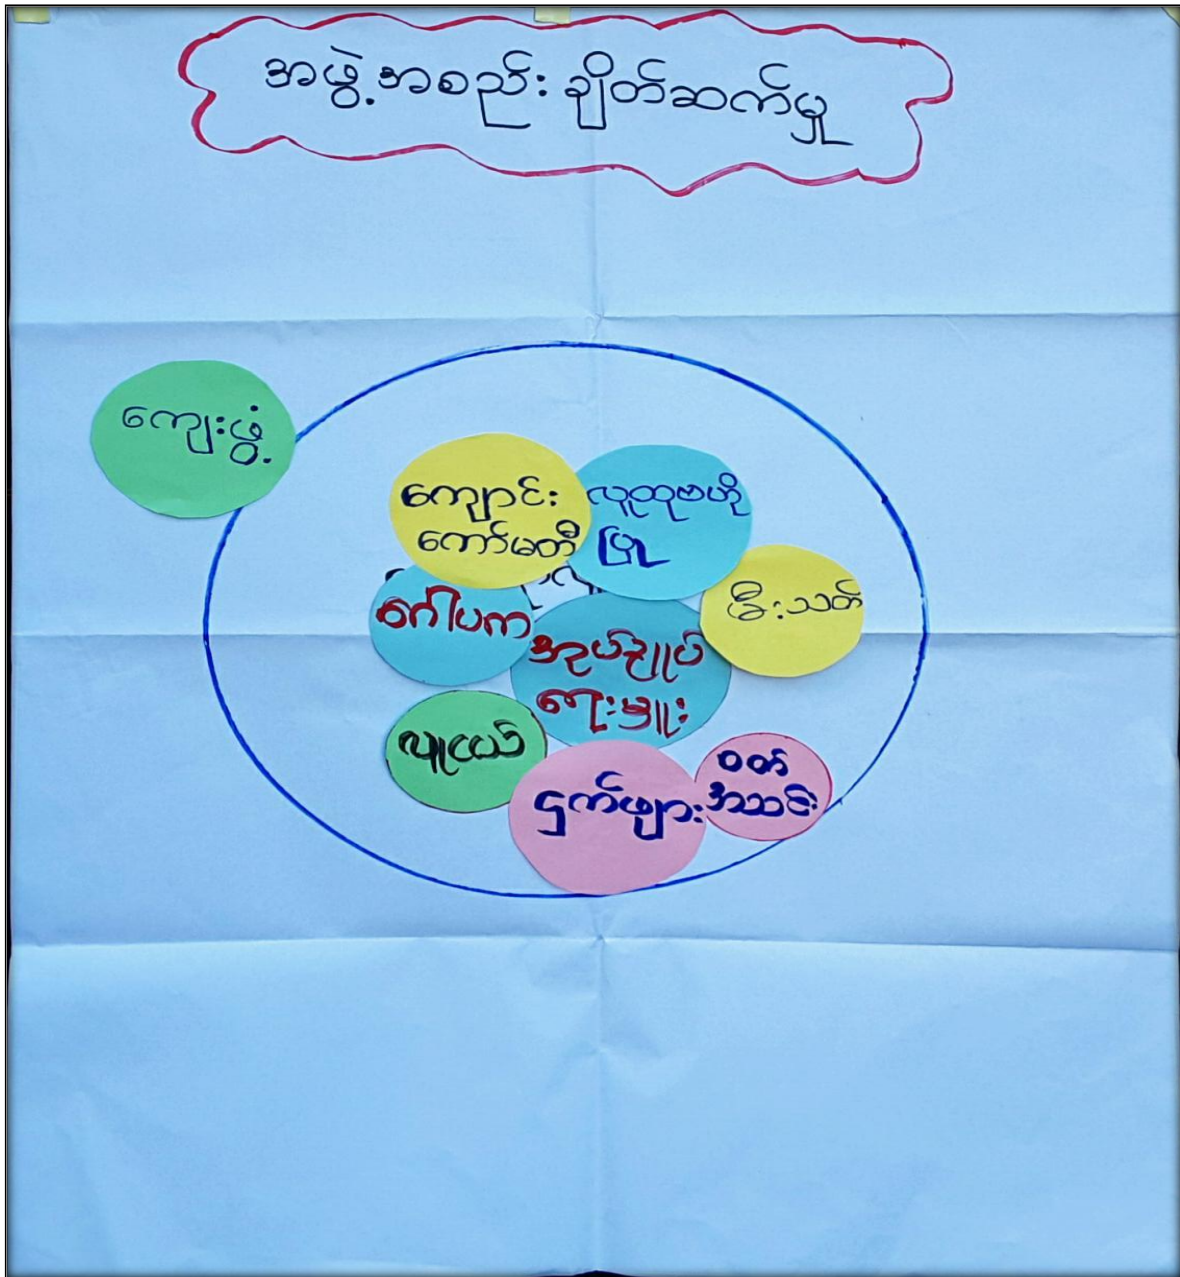 အဖွဲ့အစည်း ချိတ်ဆက်မှု
ကျေးဖွံ့
ကျောင်း
ကော်မတီ
လူထုဗဟို
ပြု
မီးသတ်
ဂေါပက
အုပ်ချုပ်
ရေးမှူး
လူငယ်
ငှက်ဖျား
ဝတ်
အသင်း